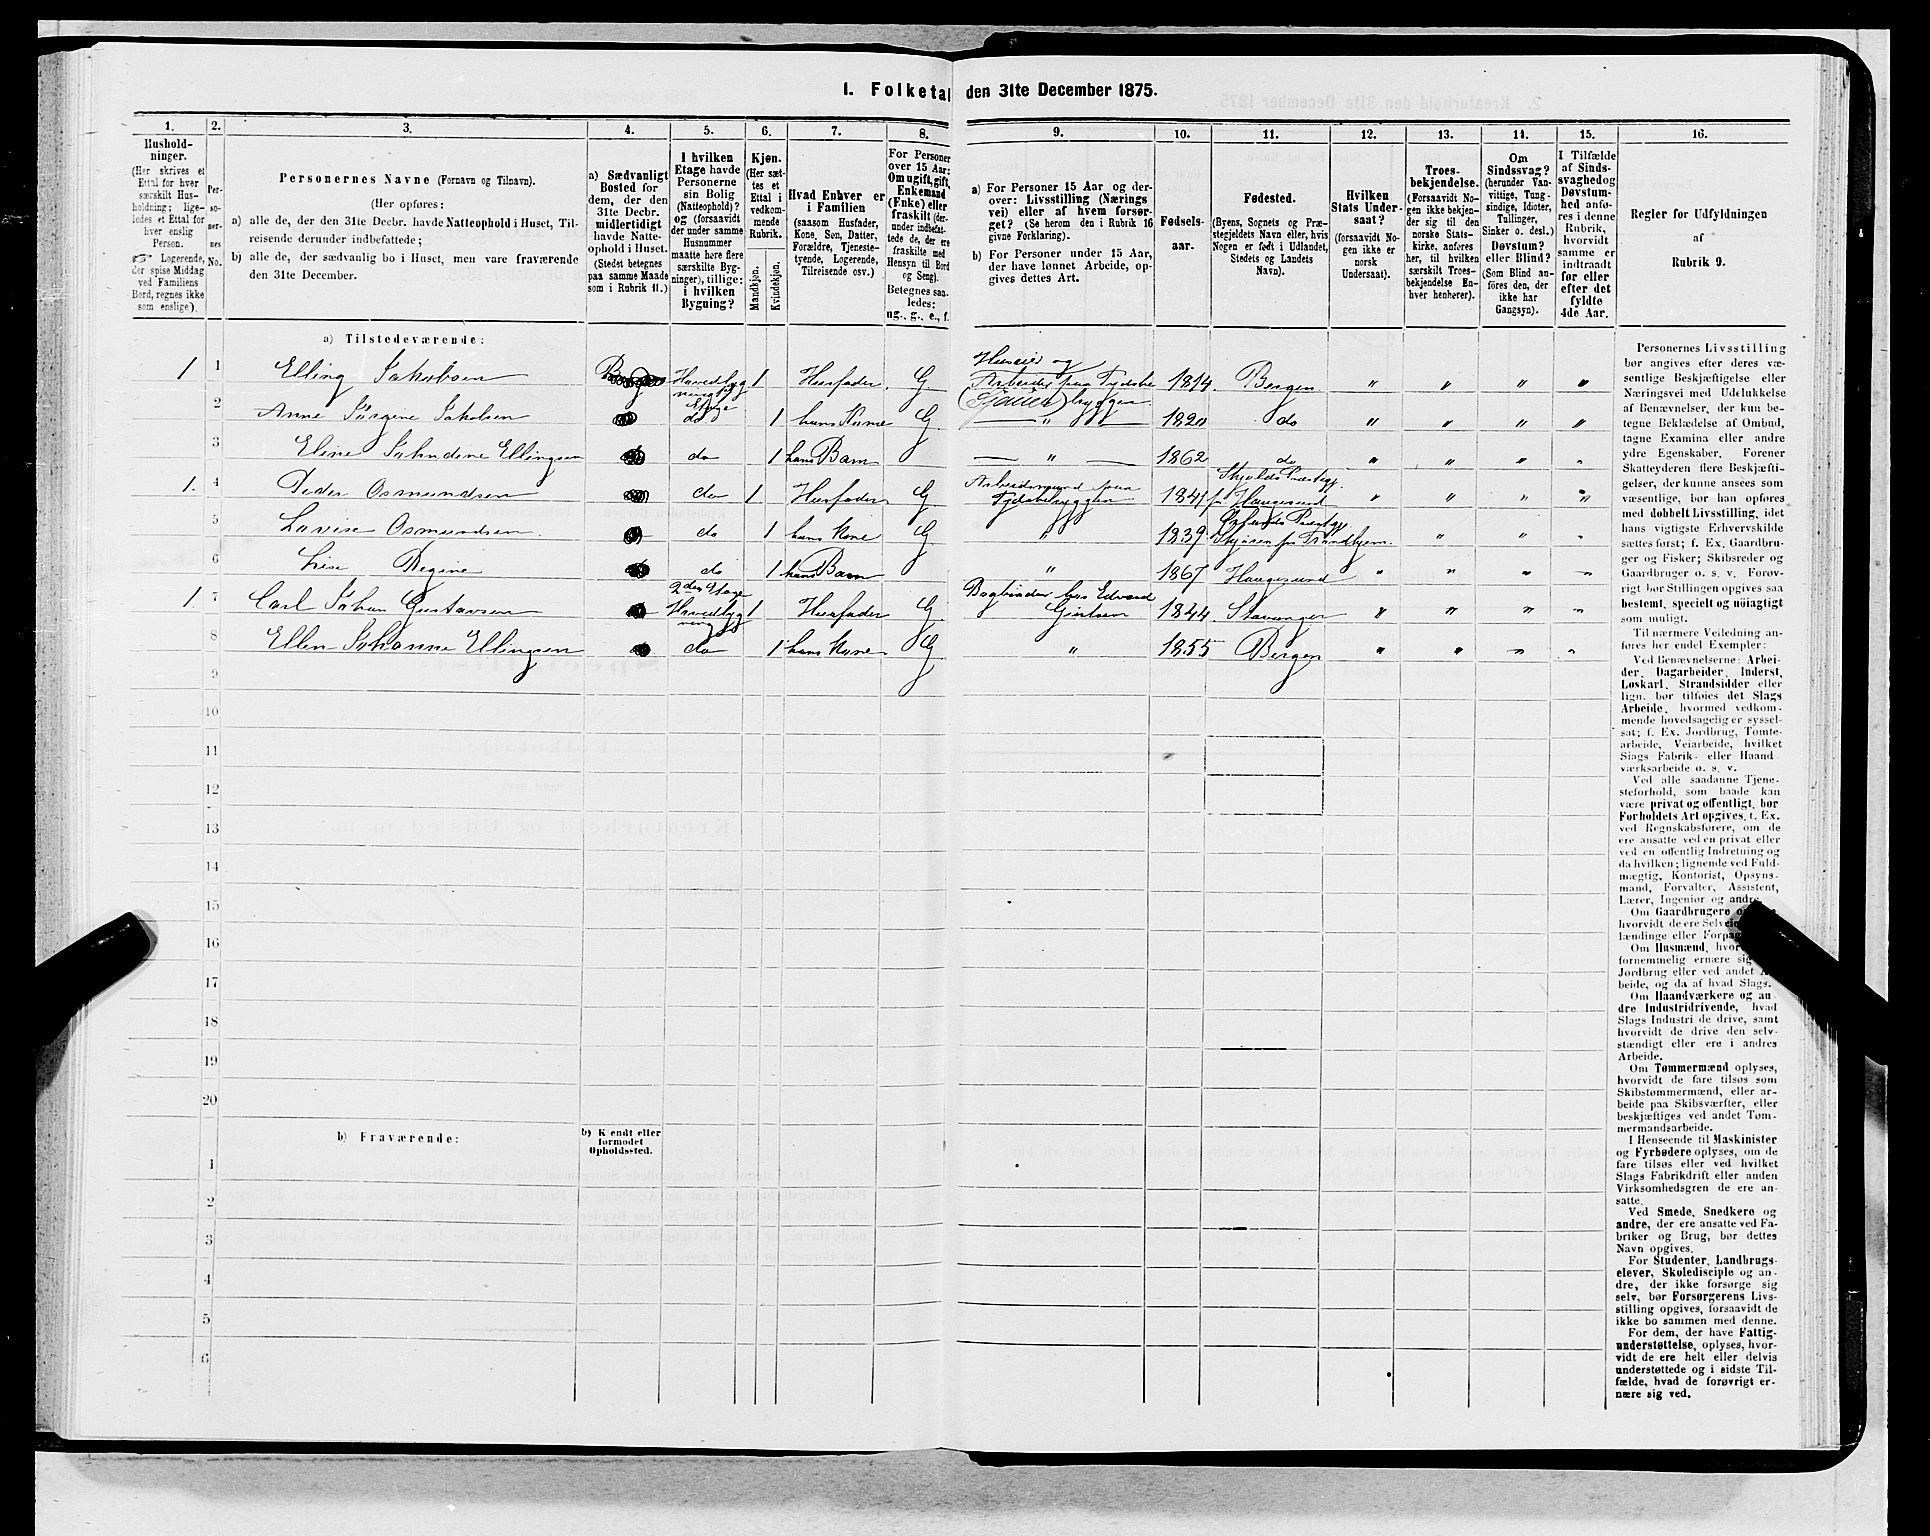 1. Folketal den 31te December 1875.
1. 2. 3. 4. 5. 6. 7. 8. 9. 10. 11. 12. 13. 14. 15. 16.
Hushold-
ninger.
(Her skrives et
Ettal for hver
særskilt Hus-
holdning; lige-
ledes et Ettal for
hver enslig
Person.
☞ Logerende,
der spise Middag
ved Familiens
Bord, regnes ikke
som enslige).
Per-
so-
ner-
nes
No.
Personernes Navne (Fornavn og Tilnavn).
(Her opføres:
a) alle de, der den 31te Decbr. havde Natteophold i Huset, Til-
reisende derunder indbefattede;
b) alle de, der sædvanlig bo i Huset, men vare fraværende
den 31te December.
a) Sædvanligt
Bosted for
dem, der den
31te Decbr.
midlertidigt
havde Natte-
ophold i Huset.
(Stedet betegnes
paa samme Maade
som i Rubrik 11.)
I hvilken
Etage havde
Personerne
sin Bolig
(Natteophold)?
og (forsaavidt
der under samme
Husnummer
maatte høre flere
særskilte Byg-
ninger), tillige:
i hvilken
Bygning?
Kjøn.
(Her sæt-
tes et
Ettal i
vedkom-
mende
Rubrik.
Mandkjøn.
Kvindekjøn.
Hvad Enhver er
i Familien
(saasom Husfader,
Kone, Søn, Datter,
Forældre, Tjeneste-
tyende, Logerende,
Tilreisende osv.)
For Personer
over 15 Aar:
Om ugift, gift,
Enkemand
(Enke) eller
fraskilt (der-
under indbefat-
tede de, der ere
fraskilte med
Hensyn til Bord
og Seng).
Betegnes saa-
ledes:
ug., g., e., f.
a) For Personer 15 Aar og der-
over: Livsstilling (Nærings
vei) eller af hvem forsør-
get? (Se herom den i Rubrik 16
givne Forklaring).
b) For Personer under 15 Aar,
der have lønnet Arbeide, op-
gives dettes Art.
Fødsels-
aar.
Fødested.
(Byens, Sognets og Præ-
stegjeldets Navn eller, hvis
Nogen er født i Udlandet,
Stedets og Landets
Navn).
Hvilken
Stats Under-
saat?
(forsaavidt No-
gen ikke er
norsk
Undersaat).
Troes-
bekjendelse.
(Forsaavidt No-
gen ikke bekjen-
der sig til den
norske Stats-
kirke, anføres
her, til hvilken
særskilt Troes-
bekjendelse En-
hver henhører).
Om
Sindssvag?
(herunder Van-
vittige, Tung-
sindige, Idioter,
Tullinger,
Sinker o. desl.)
Døvstum?
eller Blind?
(Som Blind an-
føres den, der
ikke har
Gangsyn).
I Tilfælde
af Sinds-
svaghed og
Døvstum-
hed anfø-
res i denne
Rubrik,
hvorvidt
samme er
indtraadt
før eller
efter det
fyldte
4de Aar.
Regler for Udfyldningen
af
Rubrik 9.
a) Tilstedeværende:
1 1 Elling Jakobsen Hovedbyg 1 Husfader. G Huseier og
ningens Etage Arbeider paa Tydske 1814. Bergen " " " "
2 Anne Jørgine Jakobsen do 1 hans Kone G bryggen — " — 1820 do " " " "
3 Eline Jakobine Ellingsen do 1 hans Barn — " — 1862 do " " " "
1. 4 Peder Osmundsen do 1 Husfader G Arbeidsmand paa Tydskebryggen 1841 Skjolds Præstegj. pr Haugesund " " " "
5 Lovise Osmundsen. do 1 hans Kone G " 1839 Ørlands Præstgj. pr Trondhjem. " " "
6 Lise Regine do 1 hans Barn " 1867 Haugesund " " " "
1 7 Carl Johan Gustavsen 2den Etage Hovedbyg ning 1 Husfader G Bogbinder hos Edvard Giertsen 1844. Stavanger " " " "
8 Ellen Johanne Ellingsen do 1 hans Kone G " 1855 Bergen " " " "
9
10
11
12
13
14
15
16
17
18
19
20
b) Fraværende:
b) Kendt eller
formodet
Opholdssted.
1
2
3
4
5
6
Personernes Livsstilling
bør angives efter deres væ-
sentlige Beskjæftigelse eller
Næringsvei med Udelukkelse
af Benævnelser, der kun be-
tegne Beklædelse af Ombud,
tagne Examina eller andre
ydre Egenskaber. Forener
Skatteyderen flere Beskjæfti-
gelser, der kunne ansees som
væsentlige, bør han opføres
med dobbelt Livsstilling, idet
hans vigtigste Erhvervskilde
sættes først; f. Ex. Gaardbru-
ger og Fisker; Skibsreder og
Gaardbruger o. s. v. Forøv-
rigt bør Stillingen opgives saa
bestemt, specielt og nøiagtigt
som muligt.
Til nærmere Veiledning an-
føres her endel Exempler:
Ved Benævnelserne: Arbei-
der, Dagarbeider, Inderst,
Løskarl, Strandsidder eller
lign. bør tilføies det Slags
Arbeide, hvormed vedkom-
mende hovedsagelig er syssel-
sat; f. Ex. Jordbrug, Tomte-
arbeide, Veiarbeide, hvilket
Slags Fabrik- eller Haand
værksarbeide o. s. v.
Ved alle saadanne Tjene-
steforhold, som baade kan
være privat og offentligt, bør
Forholdets Art opgives, f. Ex.
ved Regnskabsførere, om de
ere ansatte ved en privat eller
ved en offentlig Indretning og
da hvilken; lignende ved Fuld-
mægtig, Kontorist, Opsyns-
mand, Forvalter, Assistent,
Lærer, Ingeniør og andre.
Om Gaardbrugere
hvorvidt de ere Selveiere,
lændinge eller
Om Husmænd,
fornemmelig ernære sig
Jordbrug eller ved andet
beide, og da af hvad Slags.
Om Haandværkere og an-
dre Industridrivende, hvad
Slags Industri de drive, samt
hvorvidt de drive den selv-
stændigt eller ere i andres
Arbeide.
Om Tømmermænd oplyses,
hvorvidt de fare tilsøs som
Skibstømmermænd, eller ar-
beide paa Skibsværfter, eller
beskjæftiges ved andet Tøm-
mermandsarbeide.
I Henseende til Maskinister
og Fyrbødere oplyses, om de
fare tilsøs eller ved hvilket
Slags Fabrikdrift eller anden
Virksomhedsgren de ere an-
satte.
Ved Smede, Snedkere og
andre, der ere ansatte ved Fa-
briker og Brug, bør dettes
Navn opgives.
For Studenter, Landbrugs-
elever, Skoledisciple og an-
dre, der ikke forsørge sig
selv, bør Forsørgerens Livs-
stilling opgives, forsaavidt de
ikke bo sammen med denne.
For dem, der have Fattig-
understøttelse, oplyses, hvor-
vidt de ere helt eller delvis
understøttede og i sidste Til-
fælde, hvad de forøvrigt er-
nære sig ved.